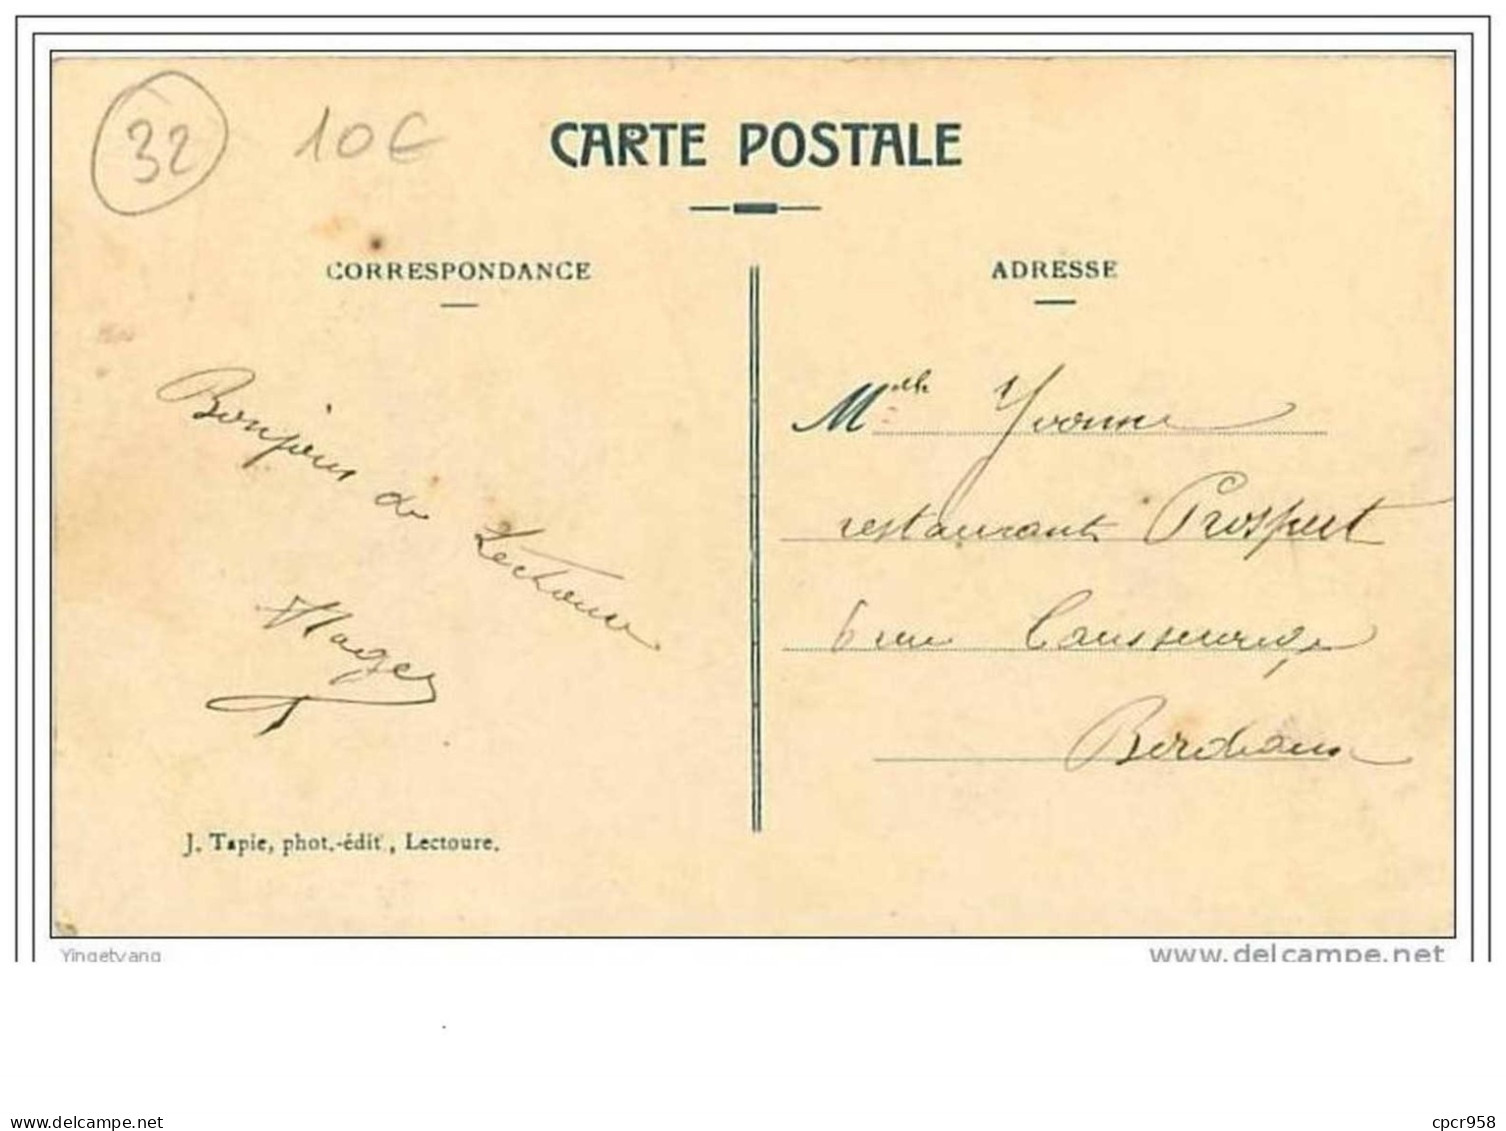 32 10€
CARTE POSTALE
CORRESPONDANCE
ADRESSE
Bonjour de Lectoure
J. Tapie, phot.-édit', Lectoure.
Mlle Yvonne
restaurant Prospert
6 rue
Bordeaux
Yingetyang
www.delcampe.net
cpcr958